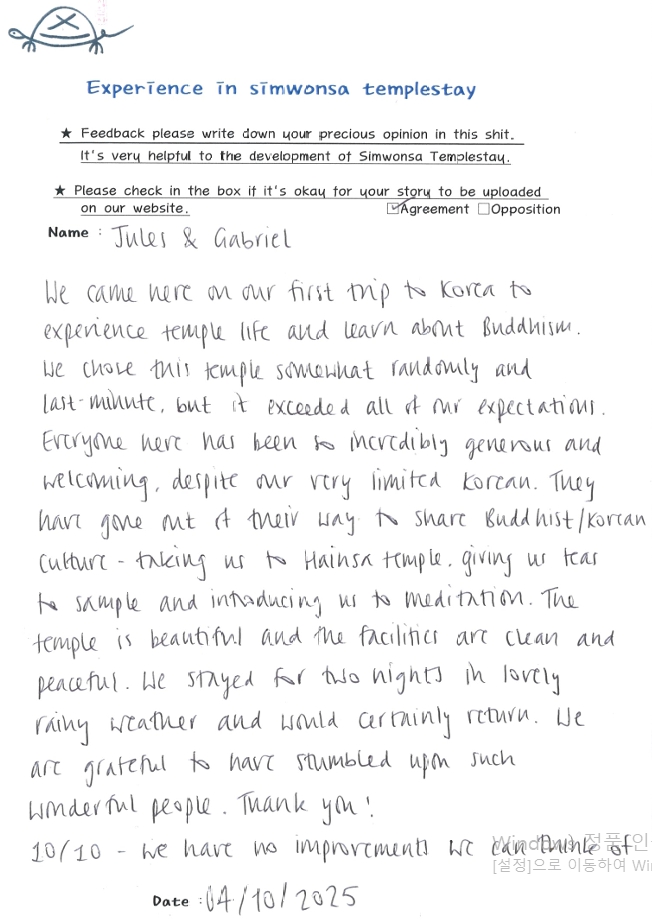 Experience in simwonsa templestay
★ Feedback please write down your precious opinion in this shit.
It's very helpful to the development of Simwonsa Templestay.
★ Please check in the box if it's okay for your story to be uploaded
on our website. ☑Agreement ☐Opposition
Name : Jules & Gabriel
We came here on our first trip to Korea to
experience temple life and learn about Buddhism.
We chose this temple somewhat randomly and
last-minute, but it exceeded all of our expectations.
Everyone here has been so incredibly generous and
welcoming, despite our very limited Korean. They
have gone out of their way to share Buddhist/Korean
culture - taking us to Hainsa temple, giving us teas
to sample and introducing us to meditation. The
temple is beautiful and the facilities are clean and
peaceful. We stayed for two nights in lovely
rainy weather and would certainly return. We
are grateful to have stumbled upon such
wonderful people. Thank you!
10/10 - we have no improvements we can think of
Windows 정품 인
[설정]으로 이동하여 Wi
Date : 04/10/2025